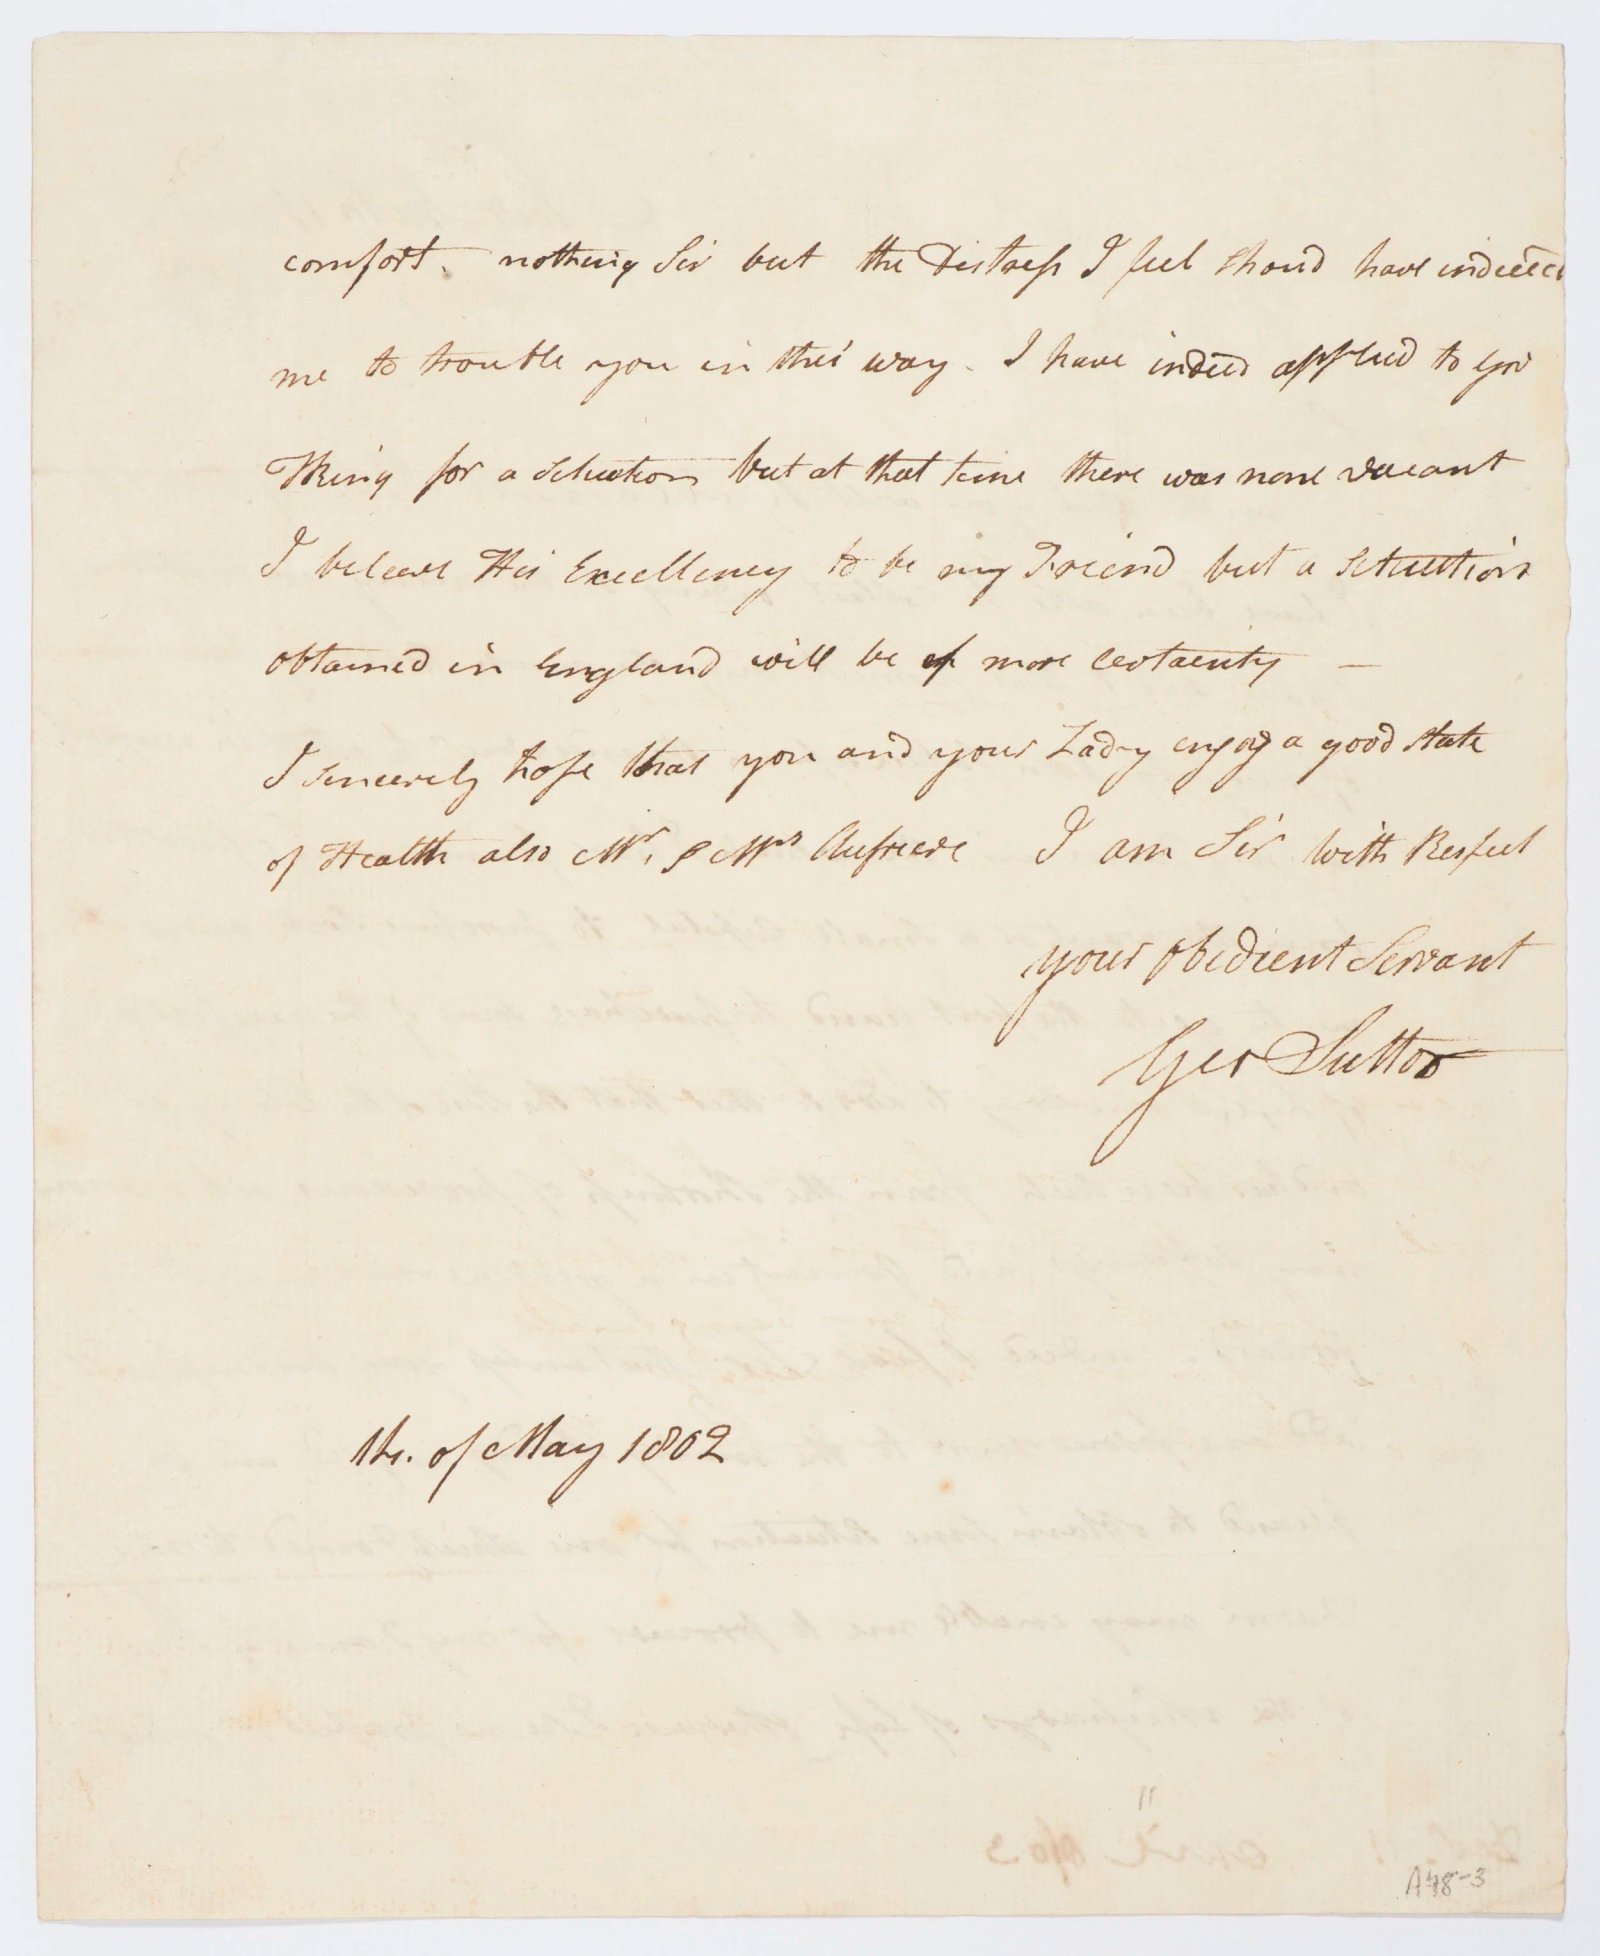 comfort. nothing Sir but the Distress I feel shoud have induced
me to trouble you in this way. I have indeed applied to Gov
King for a Situation but at that time there was none vacant
I beleave His Excellency to be my Friend but a Situation
obtained in England will be of more Certainty —
I sincerely hope that you and your Lady enjoy a good state
of Health also Mr. & Mrs Aufrere I am Sir with Respect
your Obedient Servant
Geo Suttor
of May 1802
A78-3